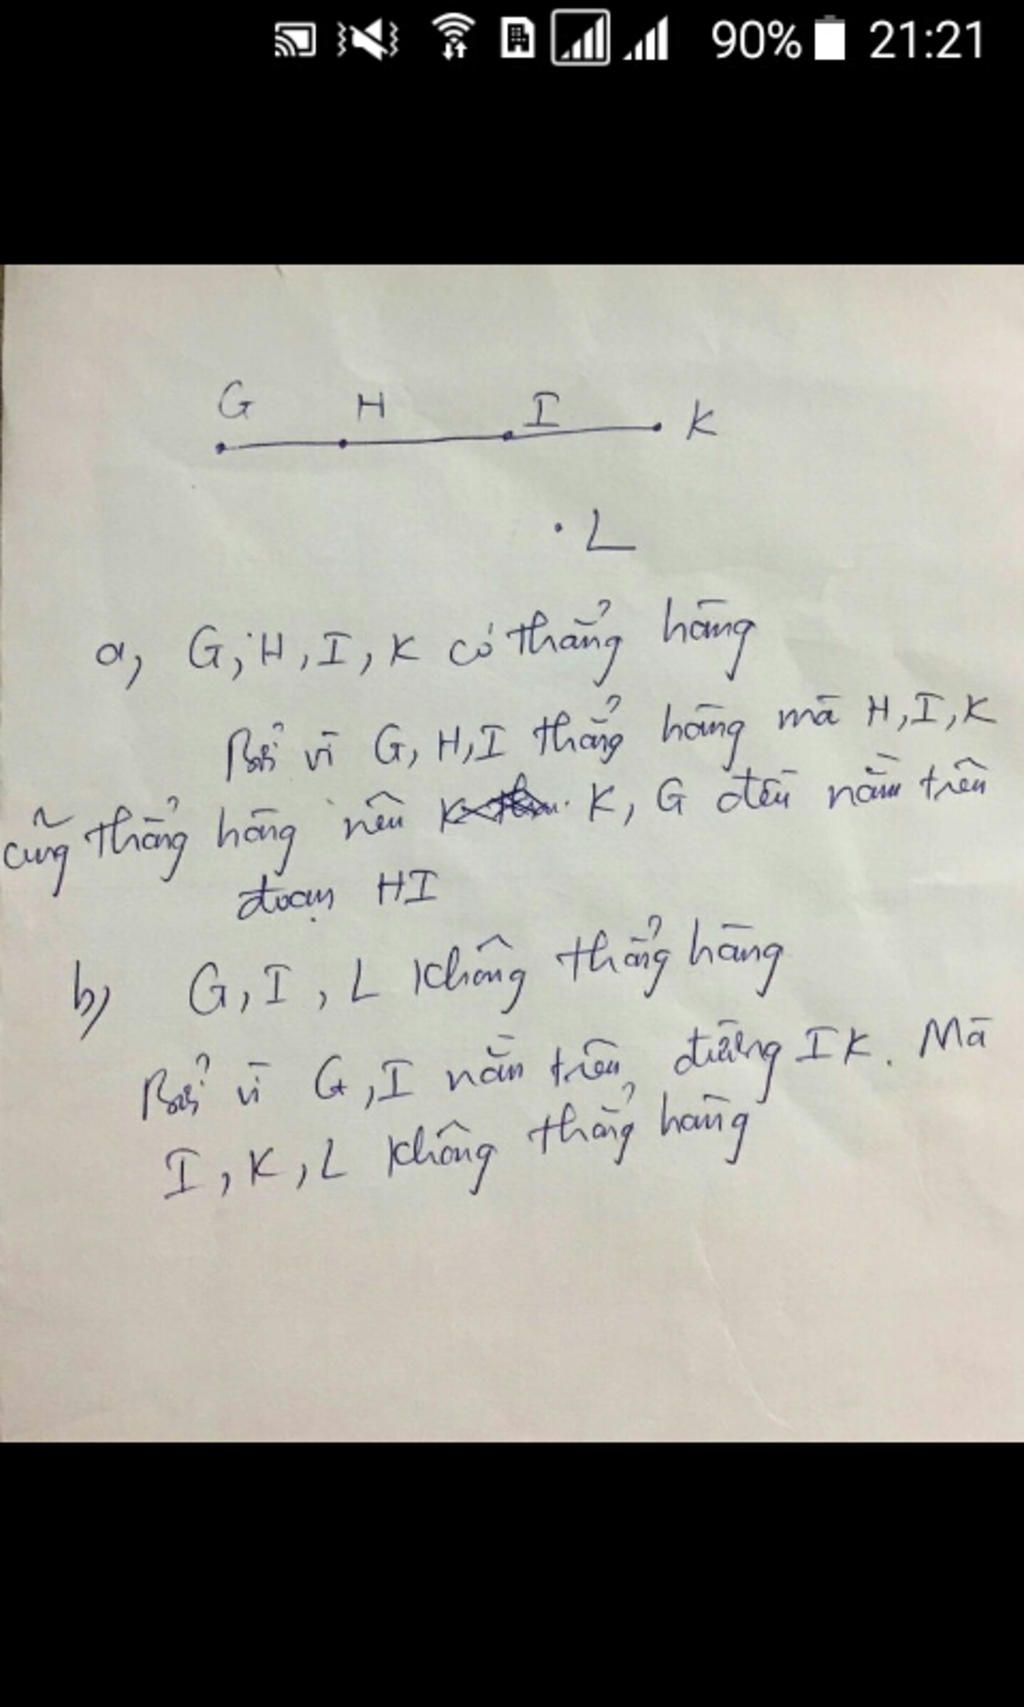 90% 21:21
G H I K
. L
a, G, H, I, K có thẳng hàng
Bởi vì G, H, I thẳng hàng mà H, I, K
cũng thẳng hàng nên K, G đều nằm trên
đoạn HI
b) G, I, L không thẳng hàng
Bởi vì G, I nằm trên đường IK. Mà
I, K, L không thẳng hàng